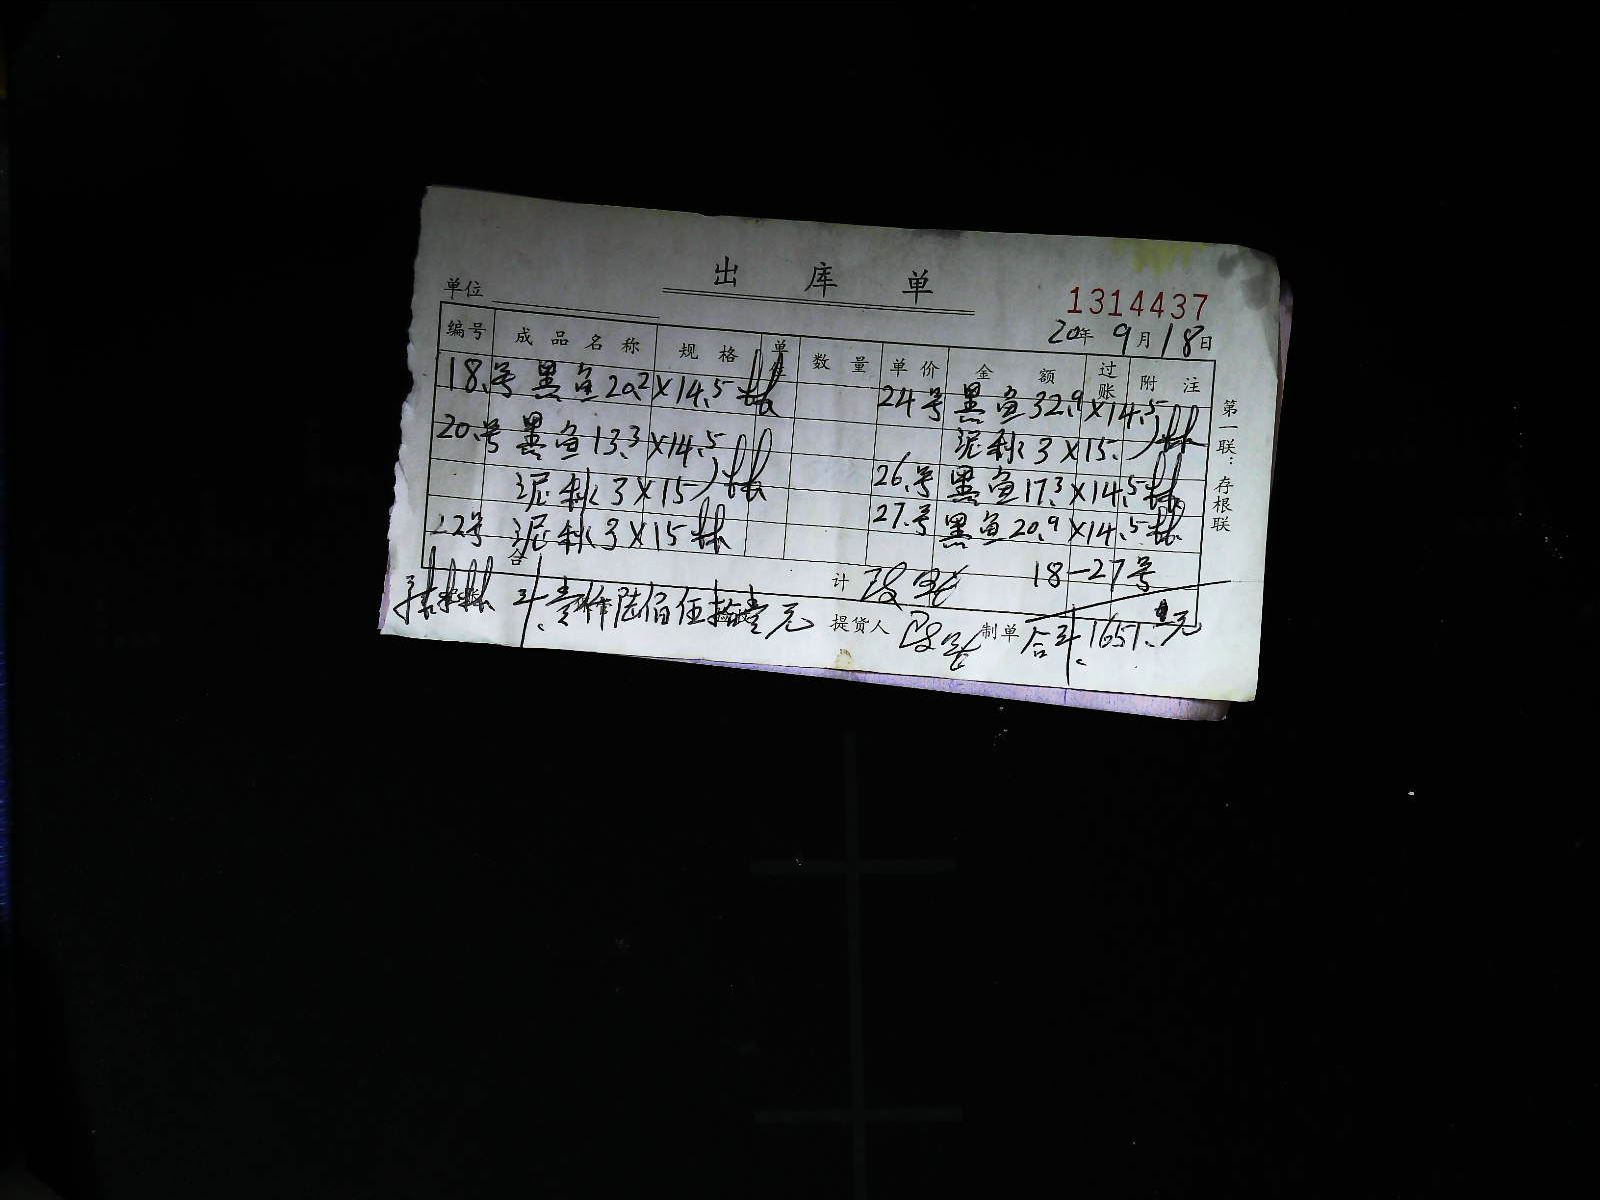 出库单
单位
1314437
20年9月18日
编号 成品名称 规格 单位 数量 单价 金额 过账 附注
18号 黑鱼20.2×14.5 24号 黑鱼32.9×14.5
20号 黑鱼13.3×14.5 泥秋3×15
泥秋3×15 26号 黑鱼17.3×14.5
22号 泥秋3×15 27号 黑鱼20.9×14.5
合计 18-27号
计.壹仟陆佰伍拾壹元 提货人 制单 合计.1651.元
第一联：存根联